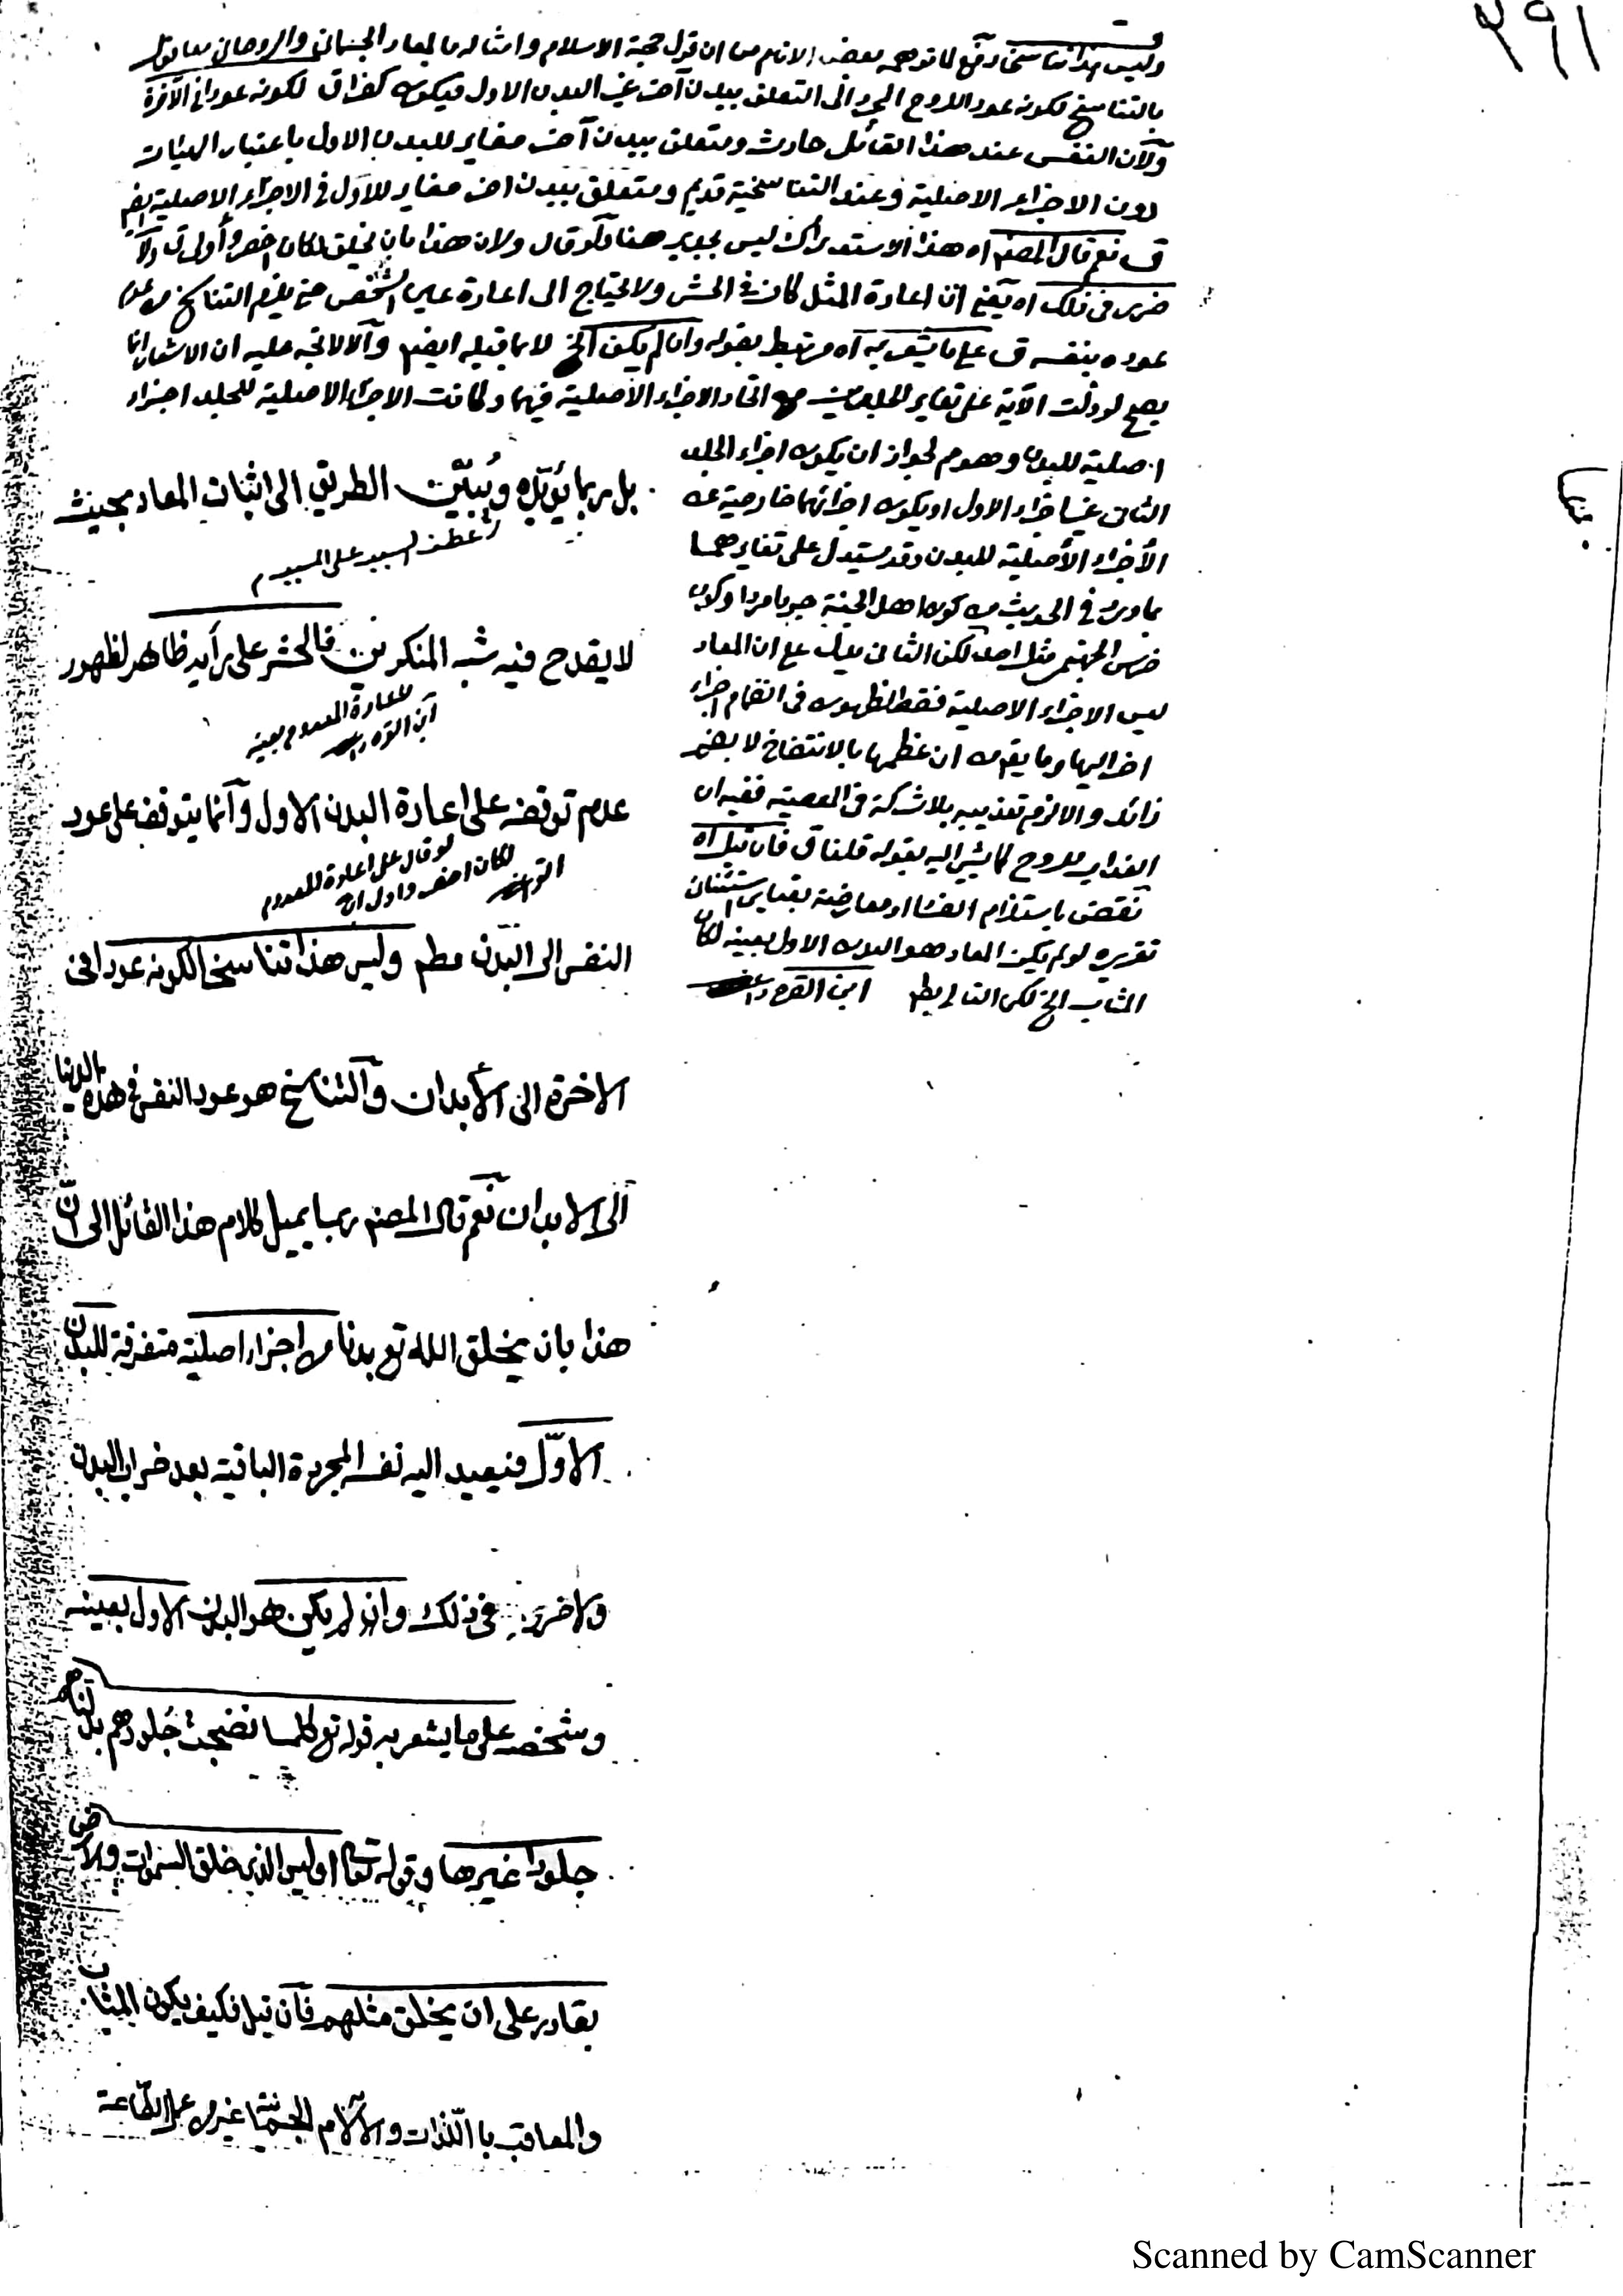 ٢٩١
وليس هذا تناسخا دفع لما توهمه بعض الانام من ان قول حجة الاسلام وامثاله بالمعاد الجسماني والروحاني معا قول
بالتناسخ لكونه عود الروح المجرد الى التعلق ببدن آخر غير البدن الاول فيكون كفرا ق لكونه عودا في الآخرة
ولان النفس عند هذا القائل حادث ومتعلق ببدن آخر مغاير للبدن الاول باعتبار الهيئات
دون الاجزاء الاصلية وعند التناسخية قديم ومتعلق ببدن اخر مغاير للاول في الاجزاء الاصلية ايضا
ق نعم قال المصنم اه هذا الاستدراك ليس بجدير هنا ولو قال ولان هذا بان يخلق لكان اخصر وأولى ق ولا
ضرر في ذلك اه يعني ان اعادة المثل كان في الحشر ولا يحتاج الى اعادة عين الشخص حتى يلزم التناسخ
عوده بنفسه ق على ما يشعر به اه مرتبط بقوله وان لم يكن الخ لا بما قبله ايضم والا لاتجه عليه ان الاشعار انما
يصح لو دلت الآية على تغاير الجلدين مع اتحاد الاجزاء الاصلية فيهما وكانت الاجزاء الاصلية للجلد اجزاء
اصلية للبدن وهو مم لجواز ان يكون اجزاء الجلد
الثاني غير اجزاء الاول او يكون اجزائهما خارجية عن
الأجزاء الأصلية للبدن وقد يستدل على تغايرهما
بما ورد في الحديث من كون اهل الجنة جردا مردا وكون
ضرس الجهنمي مثل احد لكن الثاني يدل على ان المعاد
ليس الاجزاء الاصلية فقط لظهوره في انضمام اجزاء
اخر اليها وما يقال ان عظمها بالانتفاخ لا بضم
زائد والا لزم تعذيبه بلا شركة في المعصية ففيه ان
العذاب للروح كما يشير اليه بقوله قلنا ق فان قيل اه
نقض باستلزام الفساد او معارضة بقياس استثنائي
تقريره لو لم يكن المعاد هو البدن الاول بعينه لكان
المثاب الخ لكن التالي بطم ابن القره داغي
بل ربما يؤيّده ويُبيّن الطريق الى اثبات المعاد بحيث
عطف السبب على المسبب م
لا يقدح فيه شبه المنكرين فالحشر على رأيه ظاهر لظهور
لاعادة المعدوم بعينه
ابن القره داغي
عدم توقفه على اعادة البدن الاول وانما يتوقف على عود
لو قال على اعادة المعدوم
لكان اخصر واولى
النفس الى البدن مطم وليس هذا تناسخا لكونه عودا في
الاخرة الى الأبدان والتناسخ هو عود النفس في هذه الدنيا
الى الابدان نعم قال المصنم ربما يميل كلام هذا القائل الى انّ
هذا بان يخلق الله تع بدنا من اجزاء اصلية متفرقة للبدن
الاوّل فيعيد اليه نفسه المجردة الباقية بعد خراب البدن
ولا ضرر في ذلك وان لم يكن هو البدن الاول بعينه
وشخصه على ما يشعر به قوله تع كلما نضجت جُلودهم بدّلناهم
جلودا غيرها وقوله تعا اوليس الذي خلق السموات والارض
بقادر على ان يخلق مثلهم فان قيل فكيف يكون المثاب
والمعاقب باللّذات والآلام الجسمانية غير من عمل الطّاعة
Scanned by CamScanner